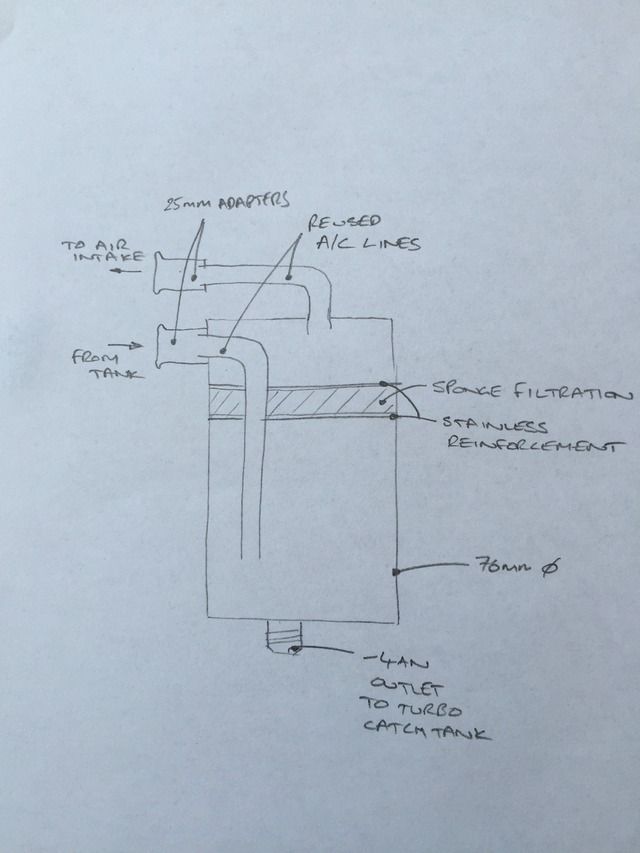 25mm ADAPTERS
REUSED
A/C LINES
TO AIR
INTAKE
FROM
TANK
SPONGE FILTRATION
STAINLESS
REINFORCEMENT
76mm Ø
-4AN
OUTLET
TO TURBO
CATCH TANK